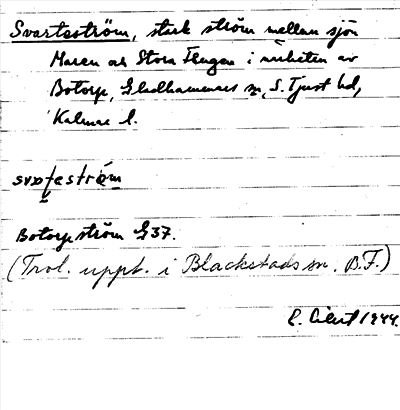 Svarteström, stark ström mellan sjön
Maren och Stora Ålugen i närheten av
Botorp, Gladhammars sn, S. Tjust hd,
Kalmar l.
svateström
Botorpström G37.
(Trol. uppt. i Blackstads sn. B.F.)
1944.